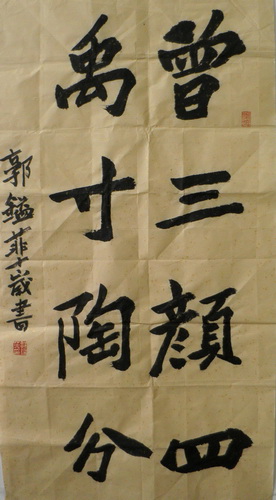 曾三颜四
禹寸陶分
郭鎰菲十歲書